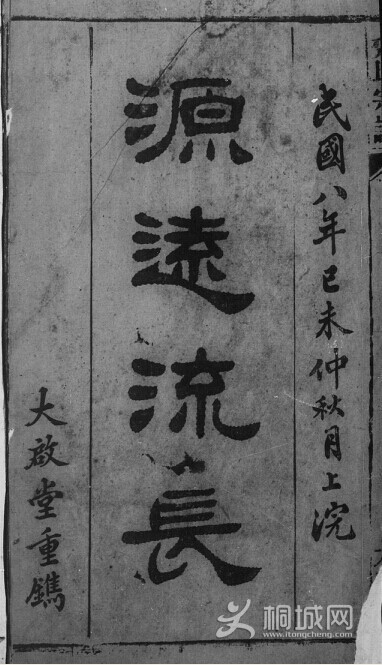 民國八年己未仲秋月上浣
源遠流長
大啟堂重鐫
桐城网
www.itongcheng.com